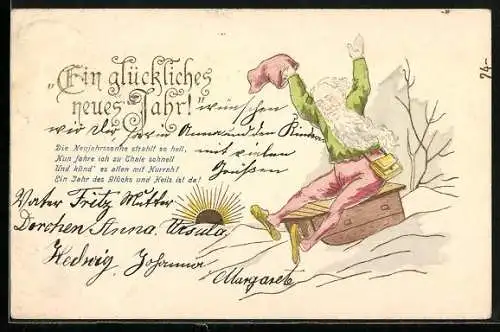 „Ein glückliches
neues Jahr!" wünschen
wir Dir, sowie Anna und den Kindern
mit vielen
Grüssen
Die Neujahrssonne strahlt so hell,
Nun fahre ich zu Thale schnell
Und künd' es allen mit Hurrah!
Ein Jahr des Glücks und Heils ist da!
Vater Fritz Mutter
Dorchen Anna, Ursula,
Hedwig, Johanna
Margarete
24-